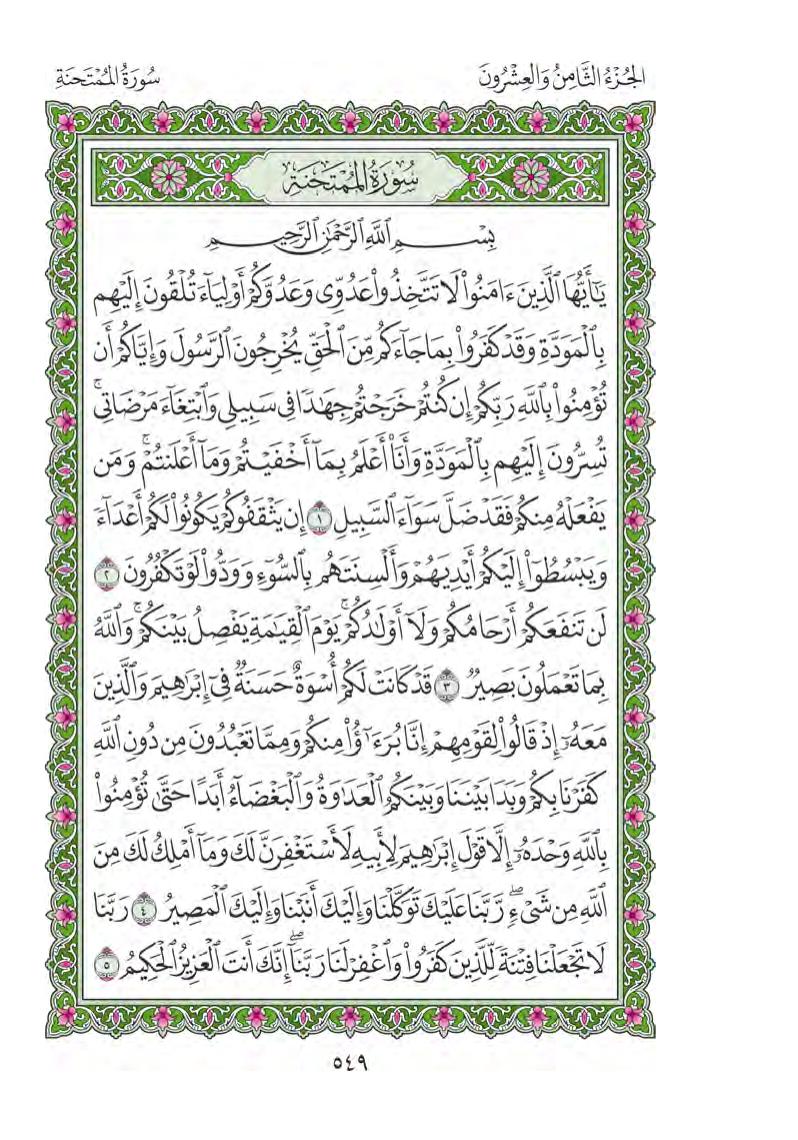 الجُزْءُ الثَّامِنُ وَالعِشْرُونَ
سُورَةُ المُمْتَحَنَةِ
سُورَةُ المُمْتَحنَة
بِسْمِ ٱللَّهِ ٱلرَّحْمَٰنِ ٱلرَّحِيمِ
يَٰٓأَيُّهَا ٱلَّذِينَ ءَامَنُوا۟ لَا تَتَّخِذُوا۟ عَدُوِّى وَعَدُوَّكُمْ أَوْلِيَآءَ تُلْقُونَ إِلَيْهِم
بِٱلْمَوَدَّةِ وَقَدْ كَفَرُوا۟ بِمَا جَآءَكُم مِّنَ ٱلْحَقِّ يُخْرِجُونَ ٱلرَّسُولَ وَإِيَّاكُمْ أَن
تُؤْمِنُوا۟ بِٱللَّهِ رَبِّكُمْ إِن كُنتُمْ خَرَجْتُمْ جِهَٰدًا فِى سَبِيلِى وَٱبْتِغَآءَ مَرْضَاتِى ۚ
تُسِرُّونَ إِلَيْهِم بِٱلْمَوَدَّةِ وَأَنَا۠ أَعْلَمُ بِمَآ أَخْفَيْتُمْ وَمَآ أَعْلَنتُمْ ۚ وَمَن
يَفْعَلْهُ مِنكُمْ فَقَدْ ضَلَّ سَوَآءَ ٱلسَّبِيلِ ١ إِن يَثْقَفُوكُمْ يَكُونُوا۟ لَكُمْ أَعْدَآءً
وَيَبْسُطُوٓا۟ إِلَيْكُمْ أَيْدِيَهُمْ وَأَلْسِنَتَهُم بِٱلسُّوٓءِ وَوَدُّوا۟ لَوْ تَكْفُرُونَ ٢
لَن تَنفَعَكُمْ أَرْحَامُكُمْ وَلَآ أَوْلَٰدُكُمْ ۚ يَوْمَ ٱلْقِيَٰمَةِ يَفْصِلُ بَيْنَكُمْ ۚ وَٱللَّهُ
بِمَا تَعْمَلُونَ بَصِيرٌ ٣ قَدْ كَانَتْ لَكُمْ أُسْوَةٌ حَسَنَةٌ فِىٓ إِبْرَٰهِيمَ وَٱلَّذِينَ
مَعَهُۥٓ إِذْ قَالُوا۟ لِقَوْمِهِمْ إِنَّا بُرَءَٰٓؤُا۟ مِنكُمْ وَمِمَّا تَعْبُدُونَ مِن دُونِ ٱللَّهِ
كَفَرْنَا بِكُمْ وَبَدَا بَيْنَنَا وَبَيْنَكُمُ ٱلْعَدَٰوَةُ وَٱلْبَغْضَآءُ أَبَدًا حَتَّىٰ تُؤْمِنُوا۟
بِٱللَّهِ وَحْدَهُۥٓ إِلَّا قَوْلَ إِبْرَٰهِيمَ لِأَبِيهِ لَأَسْتَغْفِرَنَّ لَكَ وَمَآ أَمْلِكُ لَكَ مِنَ
ٱللَّهِ مِن شَىْءٍ ۖ رَّبَّنَا عَلَيْكَ تَوَكَّلْنَا وَإِلَيْكَ أَنَبْنَا وَإِلَيْكَ ٱلْمَصِيرُ ٤ رَبَّنَا
لَا تَجْعَلْنَا فِتْنَةً لِّلَّذِينَ كَفَرُوا۟ وَٱغْفِرْ لَنَا رَبَّنَآ ۖ إِنَّكَ أَنتَ ٱلْعَزِيزُ ٱلْحَكِيمُ ٥
٥٤٩